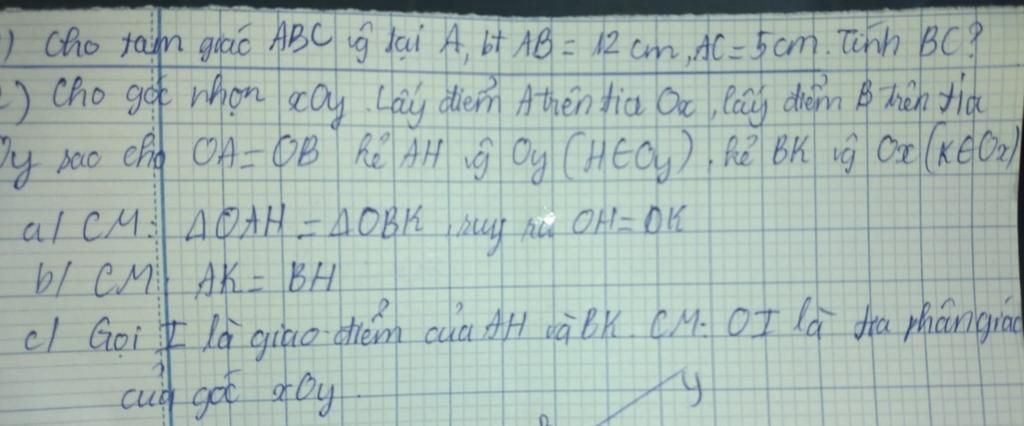 ) Cho tam giác ABC vg tại A, bt AB = 12 cm, AC = 5cm. Tính BC?
) Cho góc nhọn xOy. Lấy điểm A trên tia Ox, lấy điểm B trên tia
Oy sao cho OA = OB kẻ AH vg Oy (H∈Oy), kẻ BK vg Ox (K∈Ox)
a/ CM: ΔOAH = ΔOBK, suy ra OH = OK
b/ CM: AK = BH
c/ Gọi I là giao điểm của AH và BK. CM: OI là tia phân giác
của góc xOy.
y